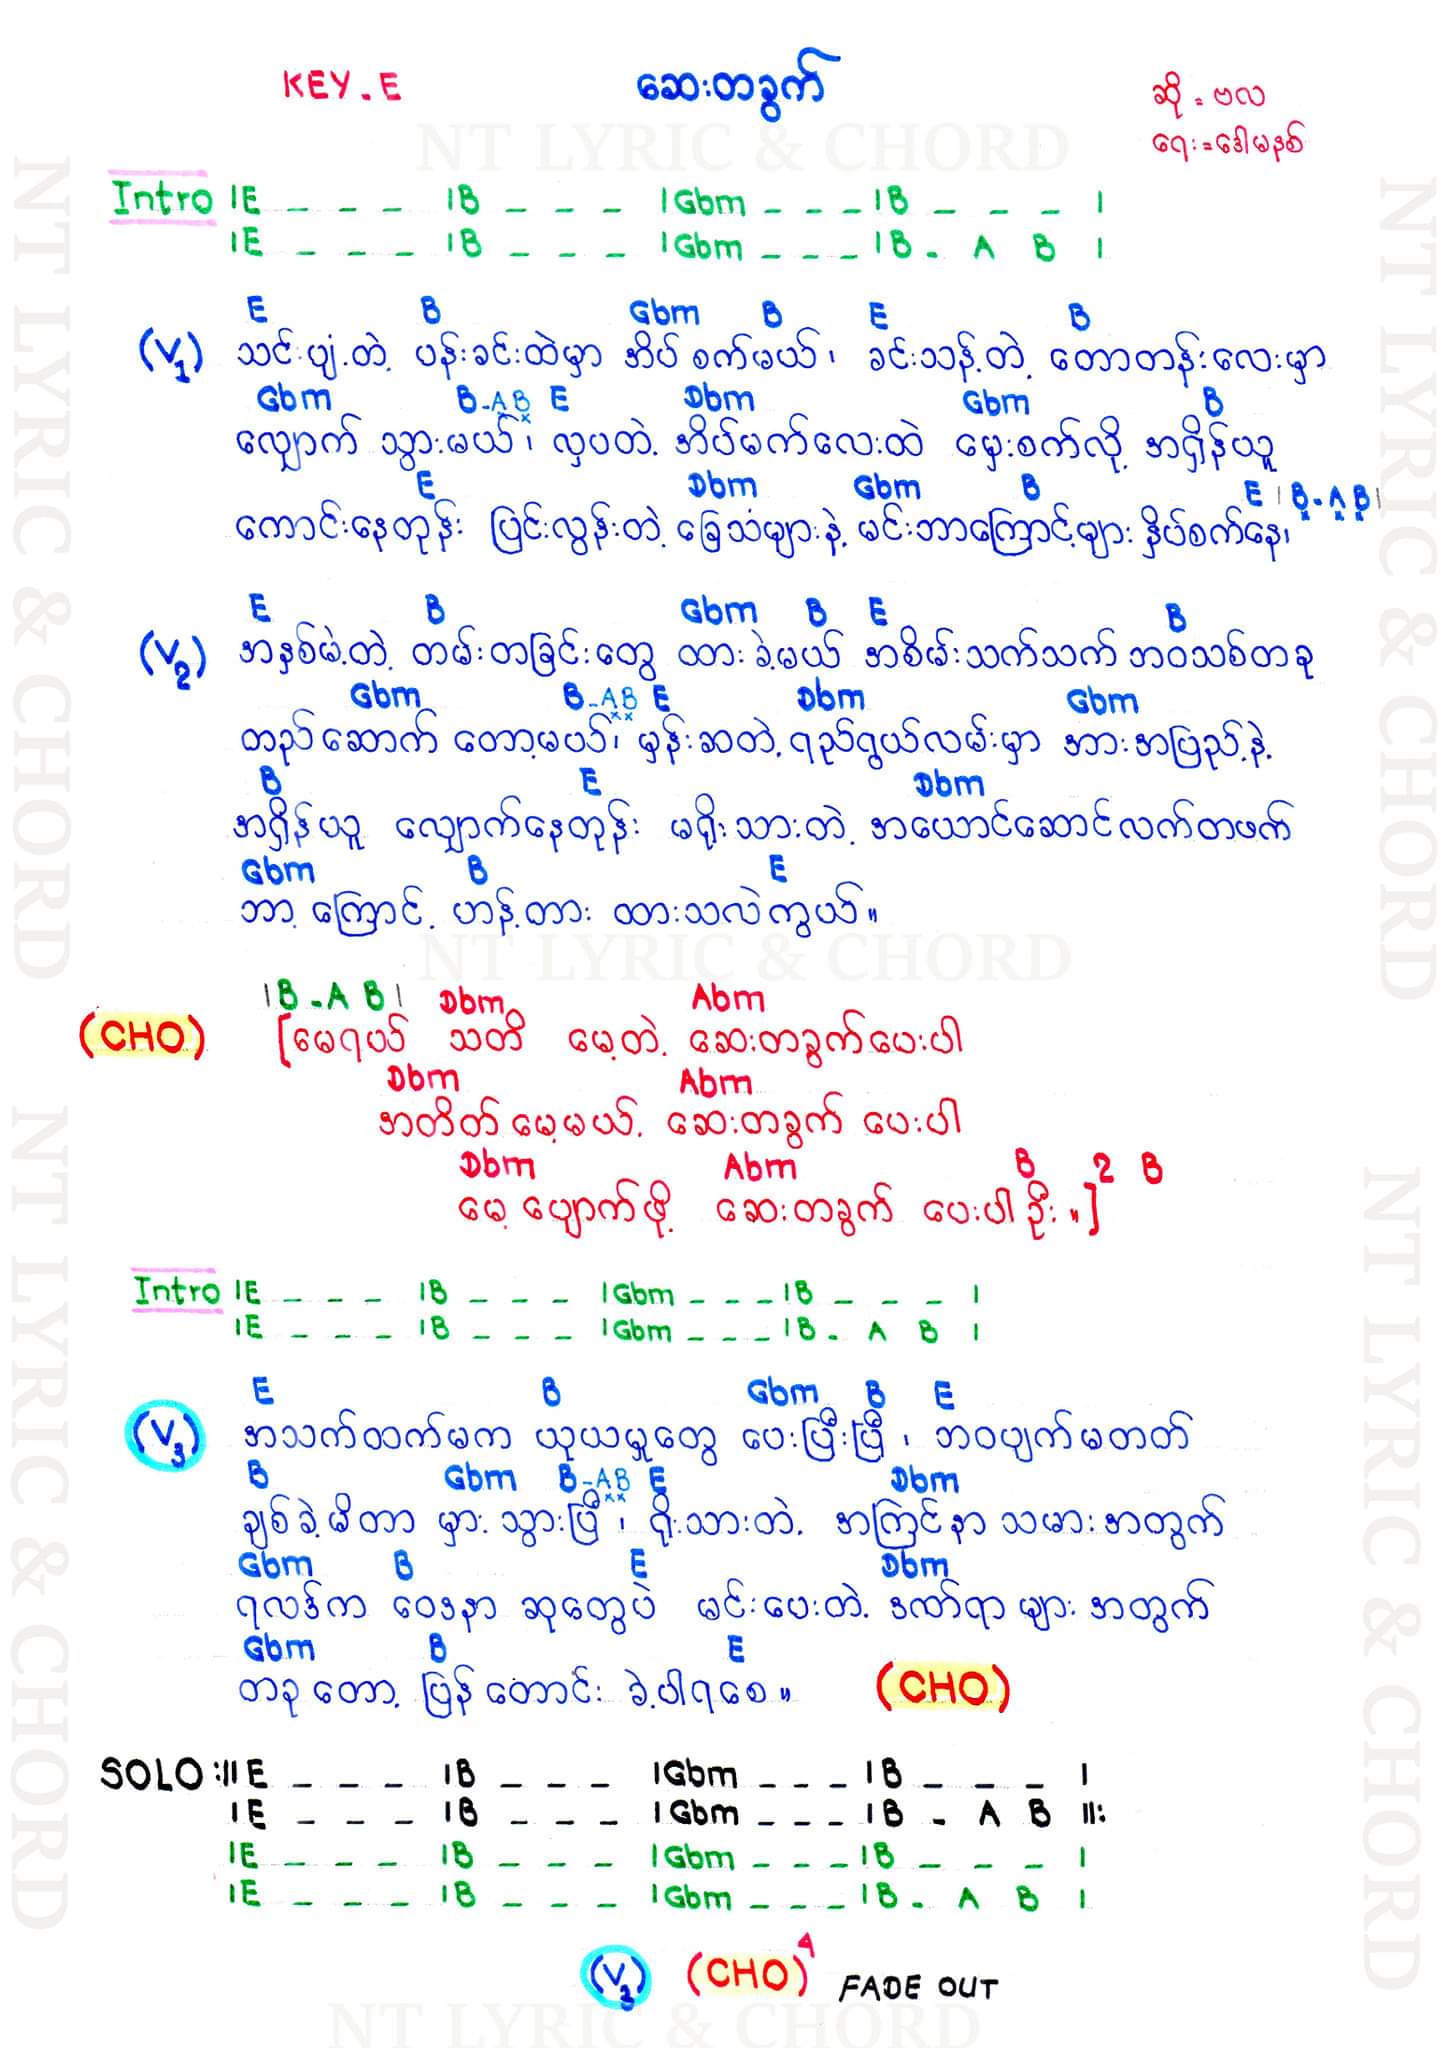 KEY - E ဆေးတခွက် ဆို = ဗလ
ရေး = ဒေါမနစ်
NT LYRIC & CHORD
Intro |E _ _ _ |B _ _ _ |Gbm _ _ _ |B _ _ _ |
|E _ _ _ |B _ _ _ |Gbm _ _ _ |B - A B |
E B Gbm B E B
(V1) သင်းပျံ့တဲ့ ပန်းခင်းထဲမှာ အိပ်စက်မယ်၊ ခင်းသန့်တဲ့ တောတန်းလေးမှာ
Gbm B - A B E Dbm Gbm B
လျှောက် သွားမယ်၊ လှပတဲ့ အိပ်မက်လေးထဲ မှေးစက်လို့ အရှိန်ယူ
E Dbm Gbm B E |B - A B|
ကောင်းနေတုန်း ပြင်းလွန်းတဲ့ ခြေသံများနဲ့ မင်းဘာကြောင့်များ နှိပ်စက်နေ၊
E B Gbm B E B
(V2) အနှစ်မဲ့တဲ့ တမ်းတခြင်းတွေ ထားခဲ့မယ် အစိမ်းသက်သက် ဘဝသစ်တခု
Gbm B - A B E Dbm Gbm
တည်ဆောက် တော့မယ်၊ မှန်းဆတဲ့ ရည်ရွယ်လမ်းမှာ အားအပြည့်နဲ့
B E Dbm
အရှိန်ယူ လျှောက်နေတုန်း မရိုးသားတဲ့ အယောင်ဆောင်လက်တဖက်
Gbm B E
ဘာ့ ကြောင့် ဟန့်တား ထားသလဲကွယ်။
NT LYRIC & CHORD
|B - A B| Dbm Abm
(CHO) [မေရယ် သတိ မေ့တဲ့ ဆေးတခွက်ပေးပါ
Dbm Abm
အတိတ်မေ့မယ့် ဆေးတခွက် ပေးပါ
Dbm Abm B 2 B
မေ့ပျောက်ဖို့ ဆေးတခွက် ပေးပါဦး။]
Intro |E _ _ _ |B _ _ _ |Gbm _ _ _ |B _ _ _ |
|E _ _ _ |B _ _ _ |Gbm _ _ _ |B - A B |
E B Gbm B E
(V3) အသက်ထက်မက ယုယမှုတွေ ပေးပြီးပြီ၊ ဘဝပျက်မတတ်
B Gbm B - A B E Dbm
ချစ်ခဲ့မိတာ မှား သွားပြီ၊ ရိုးသားတဲ့ အကြင်နာ သမားအတွက်
Gbm B E Dbm
ရလဒ်က ဝေဒနာ ဆုတွေပဲ မင်းပေးတဲ့ ဒဏ်ရာ များအတွက်
Gbm B E
တခုတော့ ပြန်တောင်း ခဲ့ပါရစေ။ (CHO)
SOLO :||E _ _ _ |B _ _ _ |Gbm _ _ _ |B _ _ _ |
|E _ _ _ |B _ _ _ |Gbm _ _ _ |B - A B ||:
|E _ _ _ |B _ _ _ |Gbm _ _ _ |B _ _ _ |
|E _ _ _ |B _ _ _ |Gbm _ _ _ |B - A B |
(V3) (CHO)4 FADE OUT
NT LYRIC & CHORD
NT LYRIC & CHORD
NT LYRIC & CHORD
NT LYRIC & CHORD
NT LYRIC & CHORD